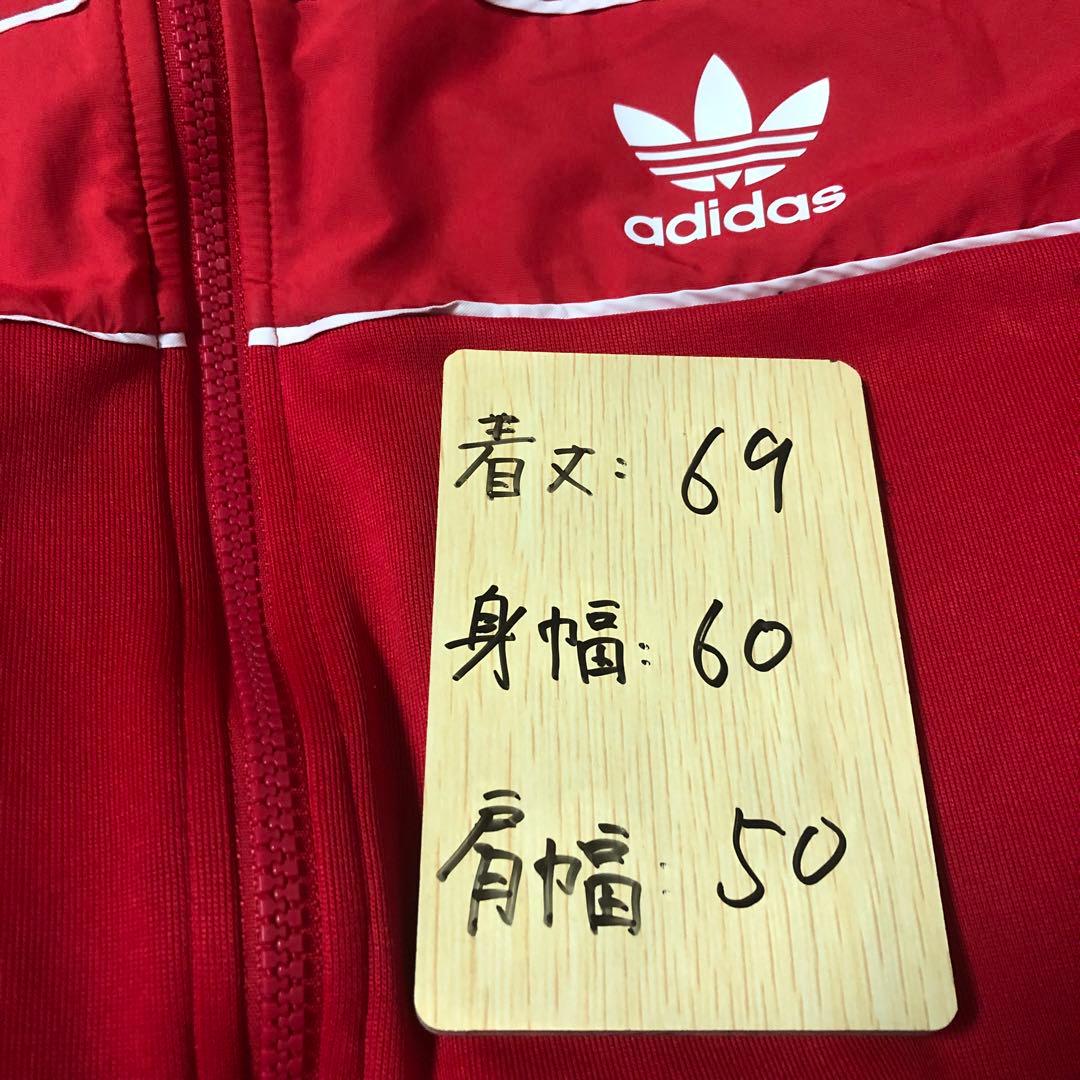 adidas
着丈: 69
身幅: 60
肩幅: 50